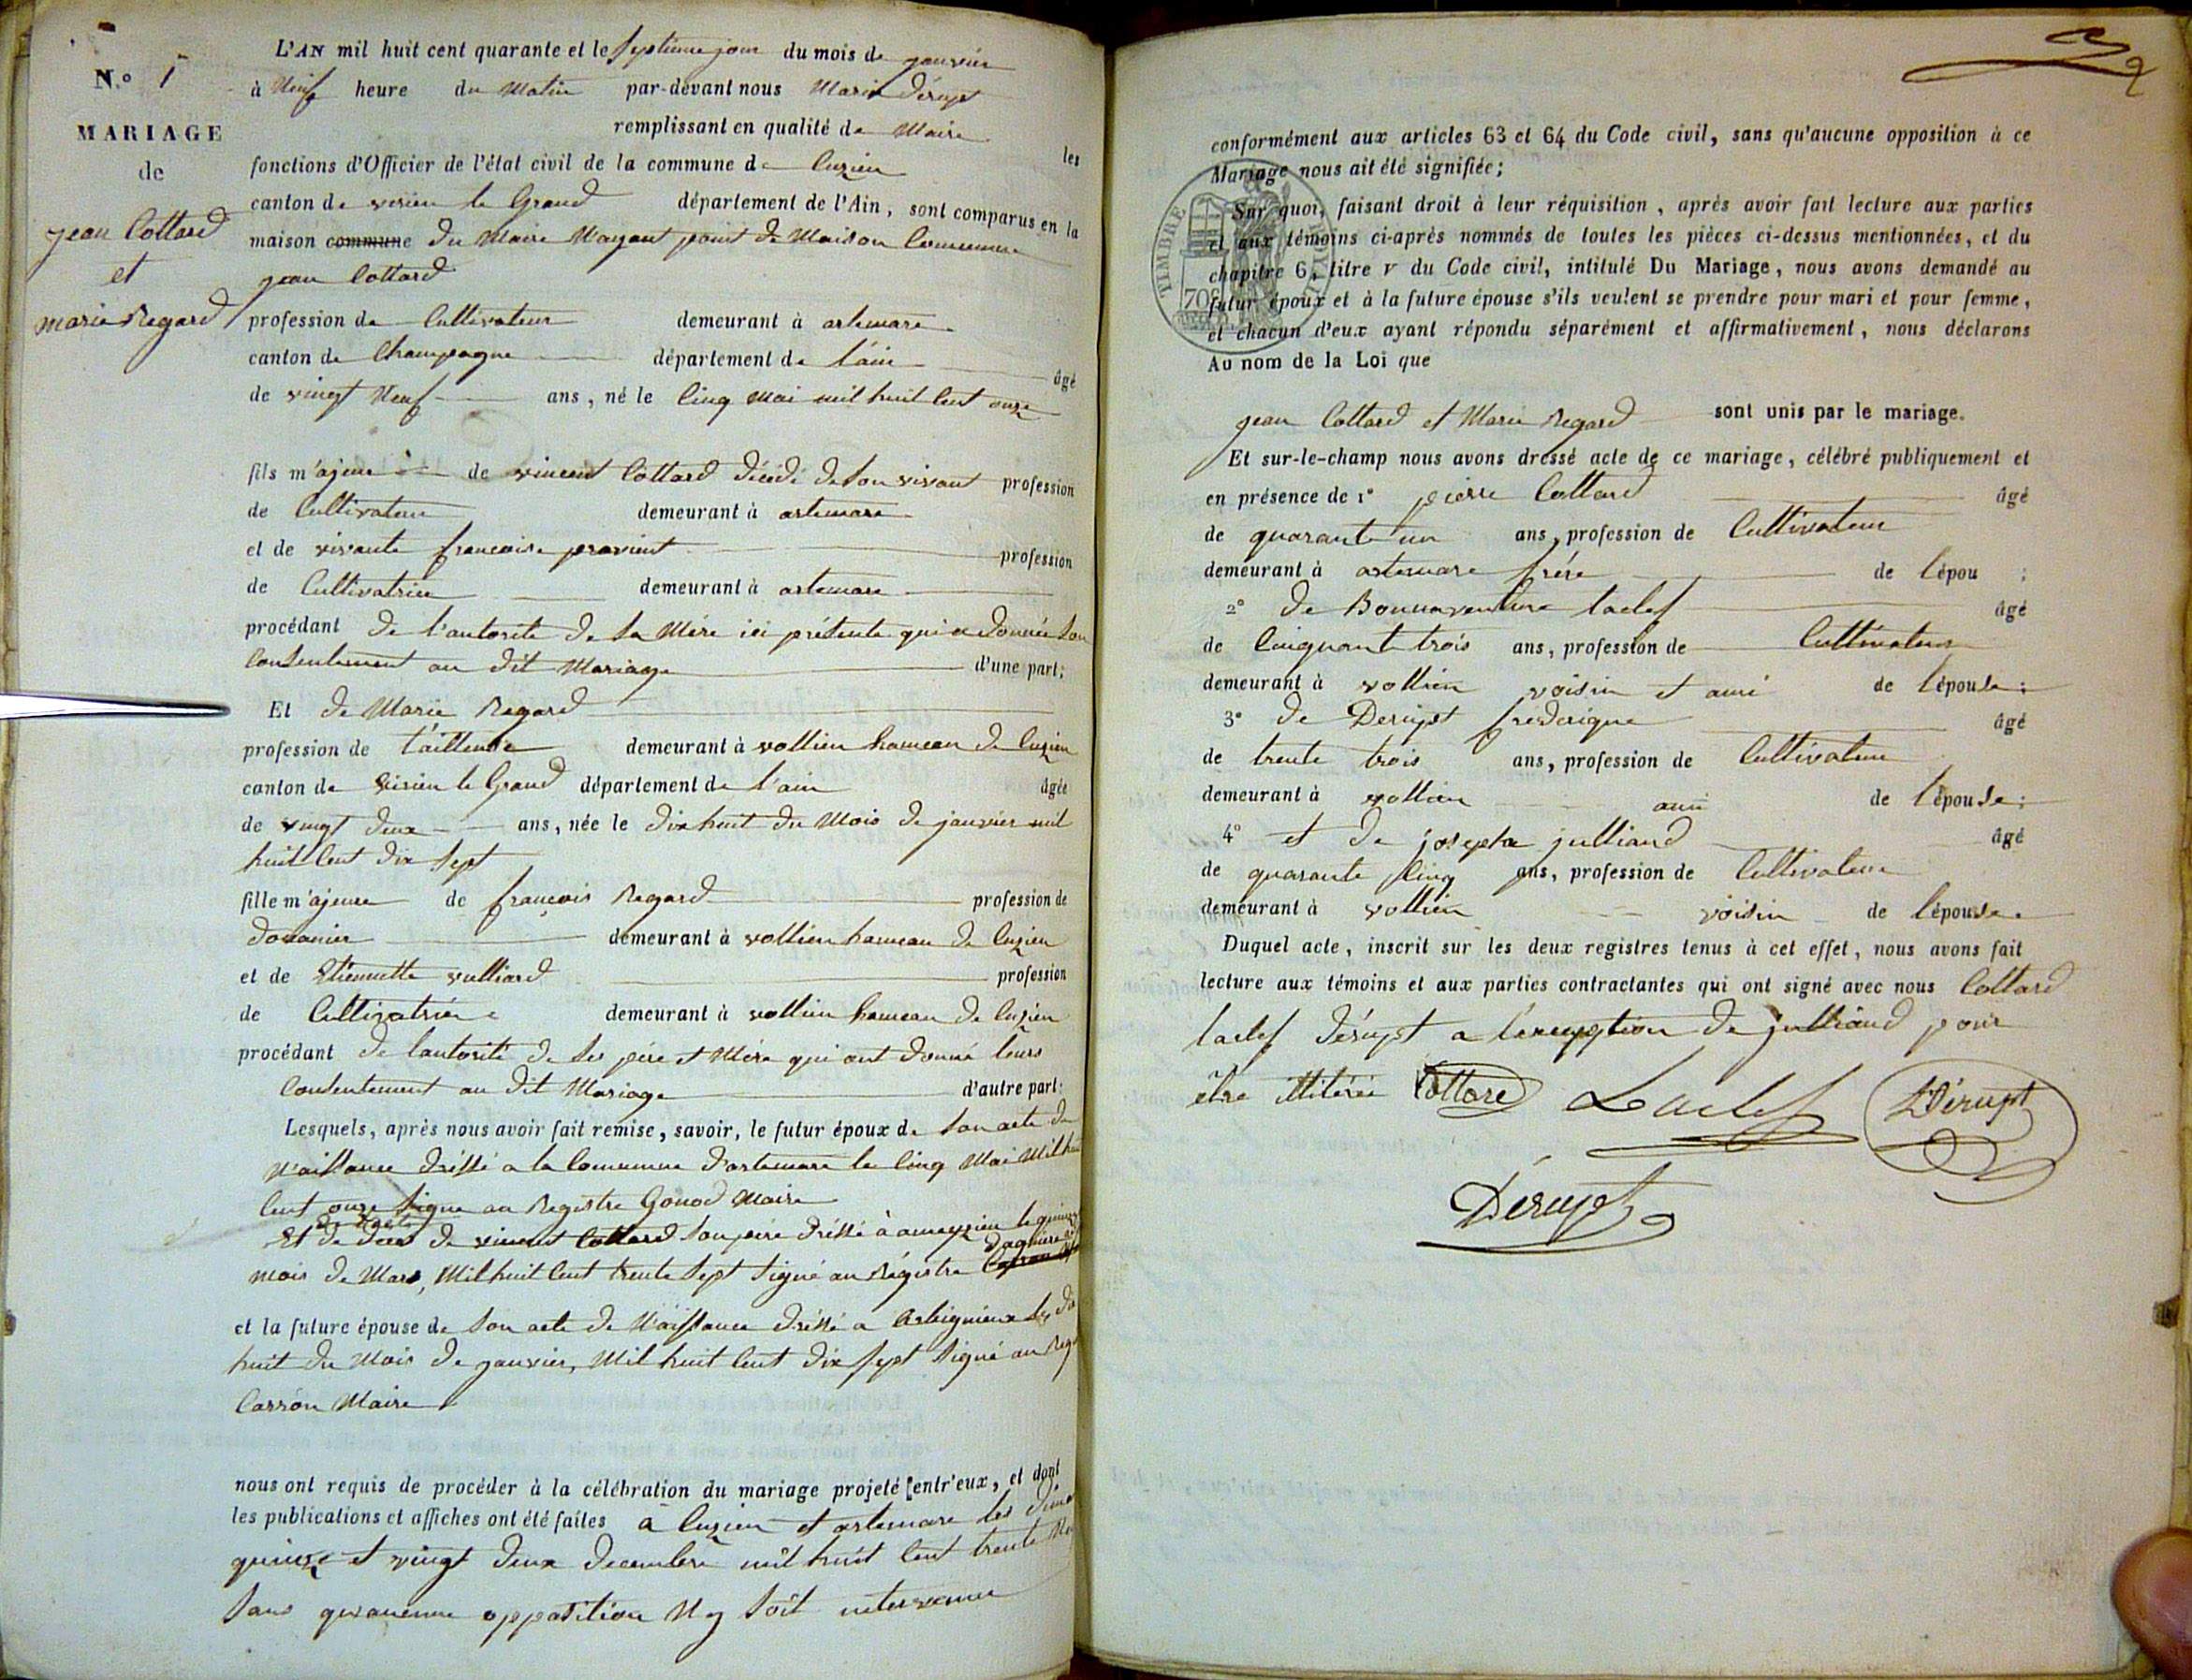 N.° 1
MARIAGE
de
jean Cottard
et
marie Regard
L'AN mil huit cent quarante et le septième jour du mois de janvier
à Neuf heure du Matin par-devant nous Marin Dérupt
remplissant en qualité de Maire les
fonctions d'Officier de l'état civil de la commune de Cuzieu
canton de virieu le Grand département de l'Ain, sont comparus en la
maison commune du Maire N'ayant point de Maison Commune
jean Cottard
profession de Cultivateur demeurant à artemare
canton de Champagne département de l'ain âgé
de vingt Neuf ans, né le Cinq Mai mil huit Cent onze
fils majeur de vincent Cottard décédé de son vivant profession
de Cultivateur demeurant à artemare
et de vivante francoise pravient profession
de Cultivatrice demeurant à artemare
procédant de l'autorité de sa Mère ici présente qui a donnée son
Consentement au dit Mariage d'une part;
Et de Marie Regard
profession de tailleuse demeurant à vollien hameau de Cuzieu
canton de virieu le Grand département de l'ain âgée
de vingt deux ans, née le dix huit du Mois de janvier mil
huit Cent dix sept
fille majeure de françois Regard profession de
douanier demeurant à vollien hameau de Cuzieu
et de Etiennette vulliard profession
de Cultivatrice demeurant à vollien hameau de Cuzieu
procédant de l'autorité de ses père et Mère qui ont donné leurs
Consentement au dit Mariage d'autre part:
Lesquels, après nous avoir fait remise, savoir, le futur époux de son acte de
Naissance dréssé a la Commune d'artemare le Cinq Mai Mil hui
Cent onze signe au Registre Gonod Maire
de l'acte
Et de déces de vincent Cottard son père dréssé à ameyzieu le quinze
mois de Mars, Mil huit Cent trente sept signé au Régistre
et la future épouse de son acte de Naissance dréssé a Arbignieux le dix
huit du Mois de janvier, Mil huit Cent dix sept signé au Reg
Carrón Maire
nous ont requis de procéder à la célébration du mariage projeté entr'eux, et dont
les publications et affiches ont été faites à Cuzieu et artemare les dima
quinze et vingt deux decembre mil huit Cent trente Neu
sans qu'aucune opposition N'y soit intervenue
conformément aux articles 63 et 64 du Code civil, sans qu'aucune opposition à ce
Mariage nous ait été signifiée;
Sur quoi, faisant droit à leur réquisition, après avoir fait lecture aux parties
et aux témoins ci-après nommés de toutes les pièces ci-dessus mentionnées, et du
chapitre 6, titre V du Code civil, intitulé Du Mariage, nous avons demandé au
futur époux et à la future épouse s'ils veulent se prendre pour mari et pour femme,
et chacun d'eux ayant répondu séparément et affirmativement, nous déclarons
Au nom de la Loi que
TIMBRE ROYAL
70c
jean Cottard et Marie Regard sont unis par le mariage.
Et sur-le-champ nous avons dressé acte de ce mariage, célébré publiquement et
en présence de 1° pierre Cottard âgé
de quarante un ans, profession de Cultivateur
demeurant à artemare frére de l'épou ;
2° de Bonnaventure Laclef âgé
de Cinquante trois ans, profession de Cultivateur
demeurant à vollien voisin et ami de l'épouse;
3° de Derupt frederique âgé
de trente trois ans, profession de Cultivateur
demeurant à vollien ami de l'épouse;
4° et de joseph julliand âgé
de quarante Cinq ans, profession de Cultivateur
demeurant à vollien voisin de l'épouse.
Duquel acte, inscrit sur les deux registres tenus à cet effet, nous avons fait
lecture aux témoins et aux parties contractantes qui ont signé avec nous Cottard
Laclef Dérupt a l'éxemption de julliand pour
être illitérée Cottard Laclef Dérupt
Dérupt